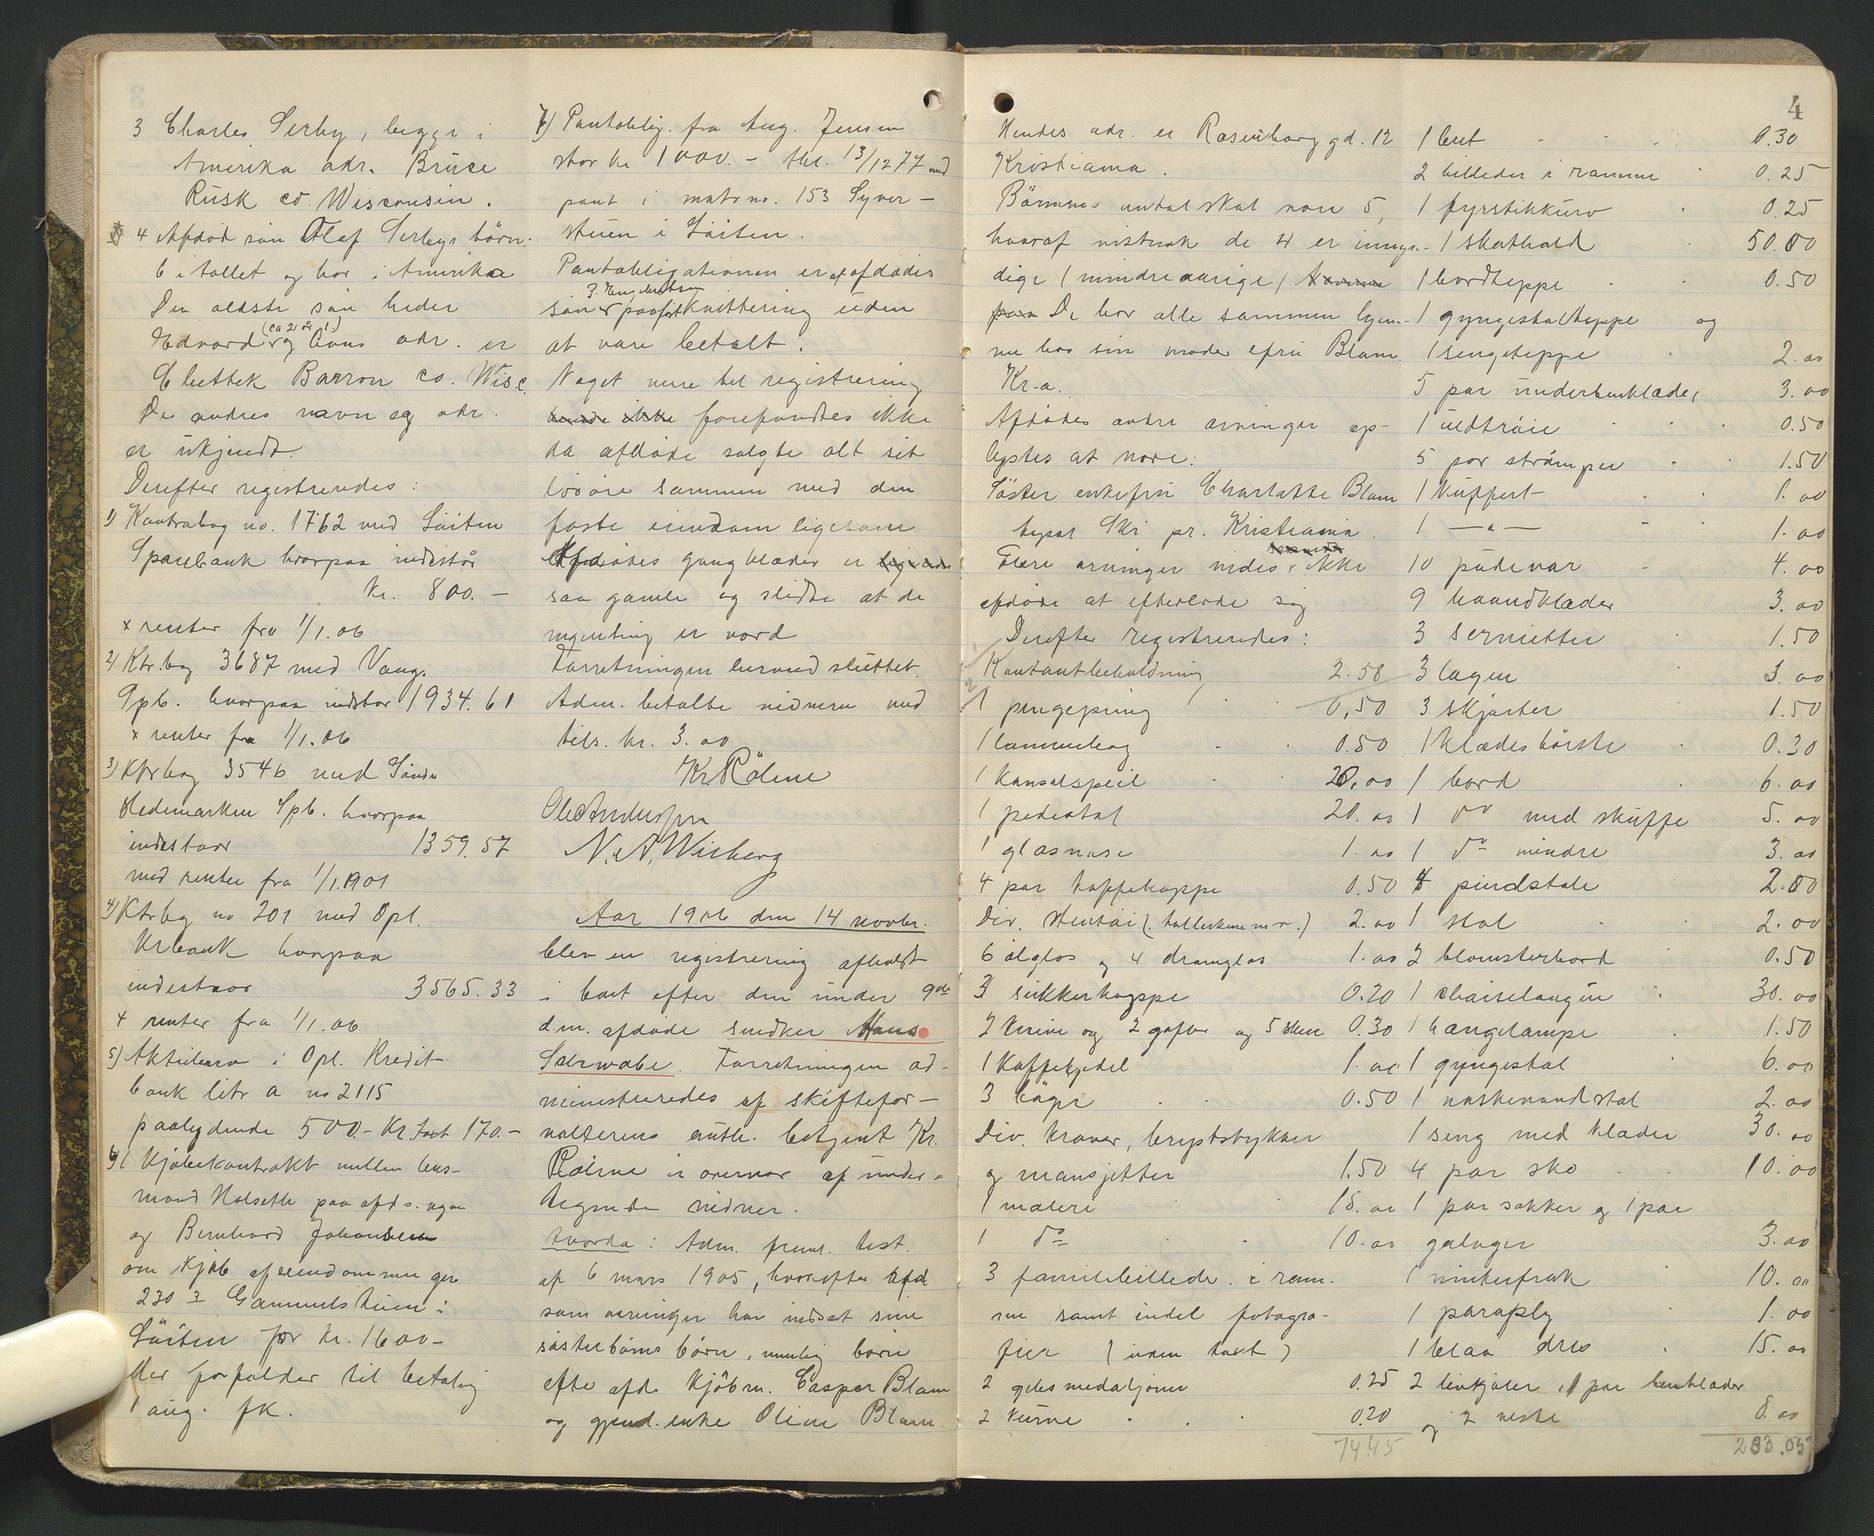 3 Charles Serby, begge i
Amerika adr. Bruce
Rusk co. Wisconsin.
4 Afdød søn Olaf Serbys børn.
6 i tallet og bor i Amerika
Den ældste søn heder
(ca 21 år)
Edvard og hans adr. er
Chettek Barron co. Wisc.
De andres navn og adr.
er ukjendt.
Derefter registreredes:
1) Kontrabog no. 1762 med Løiten
Sparebank hvorpaa indestår
kr. 800.-
+ renter fra 1/1.06
2) Ktr.bog 3687 med Vang.
Spb. hvorpaa indstår 1934.61
+ renter fra 1/1.06
3) Ktrbog 3546 med Søndre
Hedemarken Spb. hvorpaa
indestaar 1359.57
med renter fra 1/1.1901
4) Ktrbog no 201 med Opl.
Krbank hvorpaa
indestaar 3565.33
+ renter fra 1/1.06
5) Aktiebrev i Opl. Kredit
bank litr a no 2115
paalydende 500.- Kr. taxt 170.-
6) 1 Kjøbekontrakt mellem lens-
mand Holsette paa afdødes vegne
og Bernhard Johansen
om kjøb af eiendommen gno
230 3 Gammelstuen i
Løiten for kr. 1600-
der forfalder til betaling
1 aug. fk.
7) Pantoblig. fra Aug. Jensen
stor kr 1000.- thl. 13/12 77 med
pant i matr no. 153 Syver-
stuen i Løiten.
Pantobligationen er af afdødes
søn paaført kvittering uden
at være betalt.
Noget mere til registrering
forefandtes ikke
da afdøde solgte alt sit
løsøre sammen med den
faste eiendom ligesom
Afdødes gangklæder er
saa gamle og slidte at de
ingenting er værd
Forretningen hermed sluttet.
Adm. betalte vidnerne med
tils. kr. 3.00
Kr Rølne
Ole Andersen
N. A. Wisberg
Aar 1906 den 14 novbr.
blev en registrering afholdt
i boet efter den under 9de
dm. afdøde snedker Hans
Sørwabe. Forretningen ad-
ministreredes af skiftefor-
valterens auth. betjent Kr.
Rølne i overvær af under-
tegnede vidner.
Hvorda: Adm. freml. test.
af 6 mars 1905, hvorefter afd
som arvinger har indsat sine
søsterbørns børn, nemlig børn
efter afd. kjøbm. Casper Blam
og gjenl. enke Oline Blam.
4
Hendes adr. er Rosenborg gd. 12
Kristiania.
Børnenes antal skal være 5,
hvoraf vistnok de 4 er umyn-
dige (mindreaarige)
De bor alle sammen hjem-
me hos sin moder fru Blam.
Kr.a.
Afdødes andre arvinger op-
lystes at være:
Søster enkefru Charlotte Blam
bopæl Ski pr. Kristiania.
Flere arvinger vides ikke
afdøde at efterlade sig
Derefter registreredes:
Kontantbeholdning 2.58
1 pengepung 0,50
1 lommebog 0.50
1 konsolspeil 20.00
1 pedestal 20.00
1 glasvase 1.00
4 par kaffekoppe 0.50
Div. stentøi (tallerkene m.v.) 2.00
6 ølglas og 4 dramglas 1.00
3 sukkerkoppe 0.20
2 knive og 2 gafler og 5 skeer 0.30
1 Kaffekjedel 1.00
3 bøger 0.50
Div. kraver, bryststykker
og mansjetter 1.50
1 maleri 15.00
1 do 10.00
3 familiebilleder i ram-
me samt endel fotogra-
fier (uden taxt)
2 gibsmedaljoner 0.25
2 kurve 0.20
74.45
1 bret 0.30
2 billeder i ramme 0.25
1 fyrstikkurv 0.25
1 skathold 50.00
1 bordteppe 0.50
1 gyngestolteppe og
1 sengeteppe 2.00
5 par underbenklæder 3.00
1 uldtrøie 0.50
5 par strømper 1.50
1 kuffert 1.00
1 -"- 1.00
10 pudevar 4.00
9 haandklæder 3.00
3 servietter 1.50
3 lagen 3.00
3 skjorter 1.50
1 klædesbørste 0.30
1 bord 6.00
1 do med skuffe 5.00
1 do mindre 3.00
4 pindstole 2.00
1 stol 2.00
2 blomsterbord 0.50
1 chaiselongue 30.00
1 hængelampe 1.50
1 gyngestol 6.00
1 vaskevandstol 2.00
1 seng med klæder 30.00
4 par sko 10.00
1 par sokker og 1 par
galoger 3.00
1 vinterfrak 10.00
1 paraply 1.00
1 blaa dres 15.00
2 livkjoler, 1 par benklæder
og 2 veste 8.00
283.05